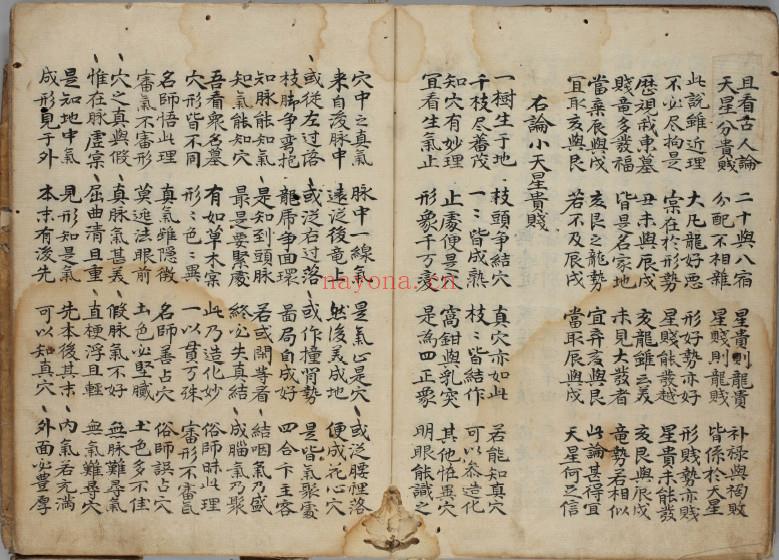 且看古人論 二十與八宿 星貴則龍貴 補祿與禍敗
天星分貴賤 分配不相雜 星賤則龍賤 皆係於天星
此說雖近理 大凡龍好惡 形好勢亦好 形賤勢亦賤
不必尽拘是 宲在於形勢 星賤能發越 星貴未能發
歷視我東墓 丑未與辰戌 亥龍雖云美 亥艮與辰戌
賤竜多發福 皆是名家地 未見大發者 竜勢若相似
當棄辰與戌 亥艮之龍勢 宜弃亥與艮 此論甚得宜
宜取亥與艮 若不及辰戌 當取辰與戌 天星何足信
右論小天星貴賤
一樹生于地 枝頭争結穴 真穴亦如此 若能知真穴
千枝尽蕃茂 一〻皆成熟 枝〻皆結作 可以叅造化
知穴有妙理 止處便是穴 窩鉗與乳突 其他恠異穴
宜看生氣止 形象千万変 是為四正象 明眼能識之
穴中之真氣 脉中一線氣 是氣止是穴 或泛腰裡落
来自後脉中 遠泛後竜上 然後美成地 便成花心穴
或從左过落 或泛右过落 或作撞背勢 是皆氣聚處
枝脚争弯抱 龍席争面環 啚局自成好 四合卞主客
知脉能知氣 是知到頭脉 若或閗等看 結咽氣乃盛
知氣能知穴 最是要緊處 終必失真結 成腦氣乃聚
吾看衆名墓 有如草木宲 此乃造化妙 俗師昧此理
穴形皆不同 形〻色〻異 一以貫万殊 審形不審氣
名師悟此理 真氣雖隱微 名師善占穴 俗師誤占穴
審氣不審形 莫逃法眼前 土色必堅膩 土色多不佳
穴之真與假 真脉氣甚美 假脉氣不好 無脉難尋氣
惟在脉虛宲 屈曲清且重 直梗浮且輕 無氣難尋穴
是知地中氣 見形知是氣 先本後其末 內氣若充滿
成形見于外 本末有後先 可以知真穴 外面必豊厚
nayona.cn